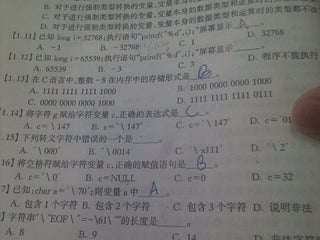 D. 对于进行强制类型转换的变量,变量本身的数据类型和
[1.11] 已知 long i=32768;执行语句"printf("%d",i);"屏幕显示 A 。
A. -1 B. -32768 C. 1 D. 32768
[1.12] 已知 long i=65539;执行语句"printf("%d",i);"屏幕显示 。
A. 65539 B. -3 C. 3 D. 程序不能执行
[1.13] 在C语言中,整数-8在内存中的存储形式是 B 。
A. 1111 1111 1111 1000 B. 1000 0000 0000 1000
C. 0000 0000 0000 1000 D. 1111 1111 1111 0111
1.14] 将字符 g 赋给字符变量 c,正确的表达式是 C 。
A. c=\147 B. c="\147" C. c='\147' D. c='
.15] 下列转义字符中错误的一个是 。
A. '\000' B. '\0014' C. '\x111' D. '\2'
16] 将空格符赋给字符变量 c,正确的赋值语句是 B 。
A. c='\0' B. c=NULL C. c=0 D. c=32
7] 已知:char a='\70';则变量 a 中 A 。
A. 包含1个字符 B. 包含2个字符 C. 包含3个字符 D. 说明非法
字符串"\"EOF\"=-\61\""的长度是 。
A. 8 B. 9 C. 14 D. 非法字符